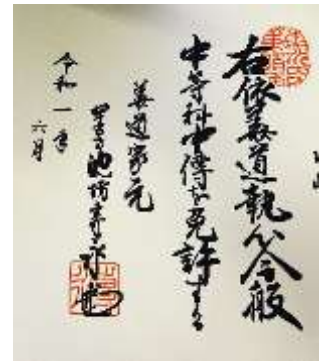 右依華道執心今般
中等科中傳を免許する
華道家元
池坊専永
令和一年
六月